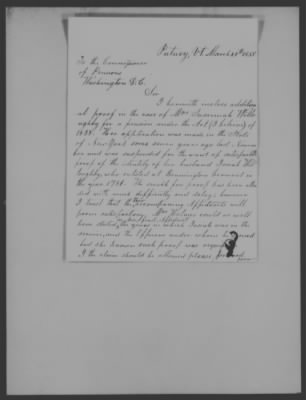 Putney, Vt March 28th 1855
To the Commissioner
of Pensions
Washington D.C.
Sir
I herewith inclose addition
al proof in the case of Mrs Susannah Willo
ughby for a pension under the Act (I believe) of
1838. Her application was made in the State
of New York some seven years ago last
but was suspended for the want of satisfactory
proof of the identity of her husband Josiah Wil
loughby, who enlisted at Bennington Vermont in
the year 1781. The search for proof has been atten
ded with much difficulty and delay; however
I trust that the accompanying Affidavits will
prove satisfactory. Mrs could as well
have stated, the years in which Josiah was in the
service, and the Officers under whom he served
had she known such proof was required
If the claim should be allowed please forward